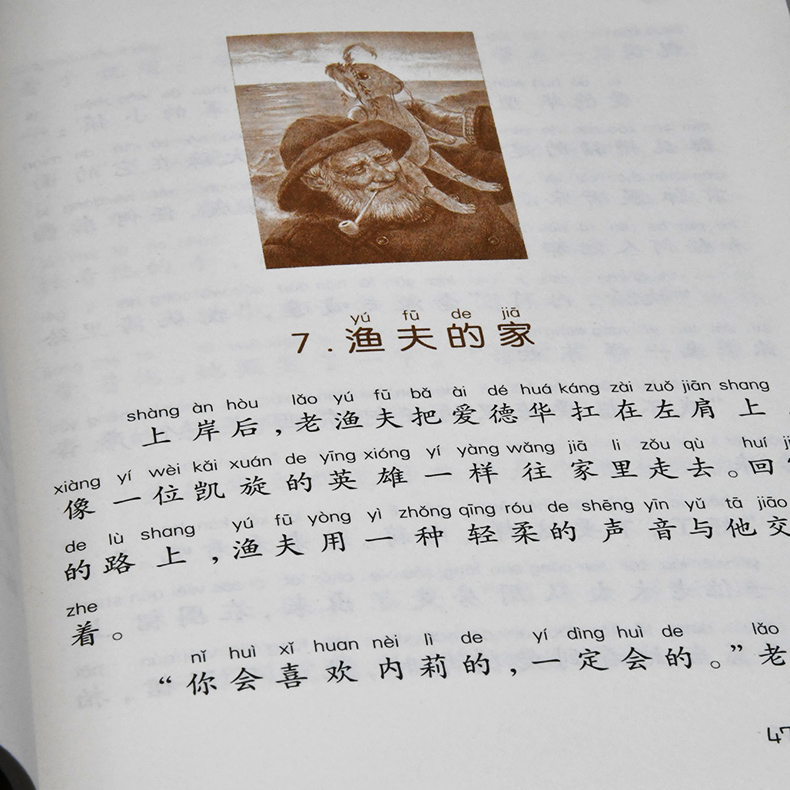 yú fū de jiā
7.渔夫的家
shàng àn hòu lǎo yú fū bǎ ài dé huá káng zài zuǒ jiān shang
上岸后,老渔夫把爱德华扛在左肩上
xiàng yí wèi kǎi xuán de yīng xióng yí yàng wǎng jiā li zǒu qù huí
像一位凯旋的英雄一样往家里走去。回
de lù shang yú fū yòng yì zhǒng qīng róu de shēng yīn yǔ tā jiāo
的路上,渔夫用一种轻柔的声音与他交
zhe
着。
nǐ huì xǐ huan nèi lì de yí dìng huì de lǎo
“你会喜欢内莉的,一定会的。”老
47